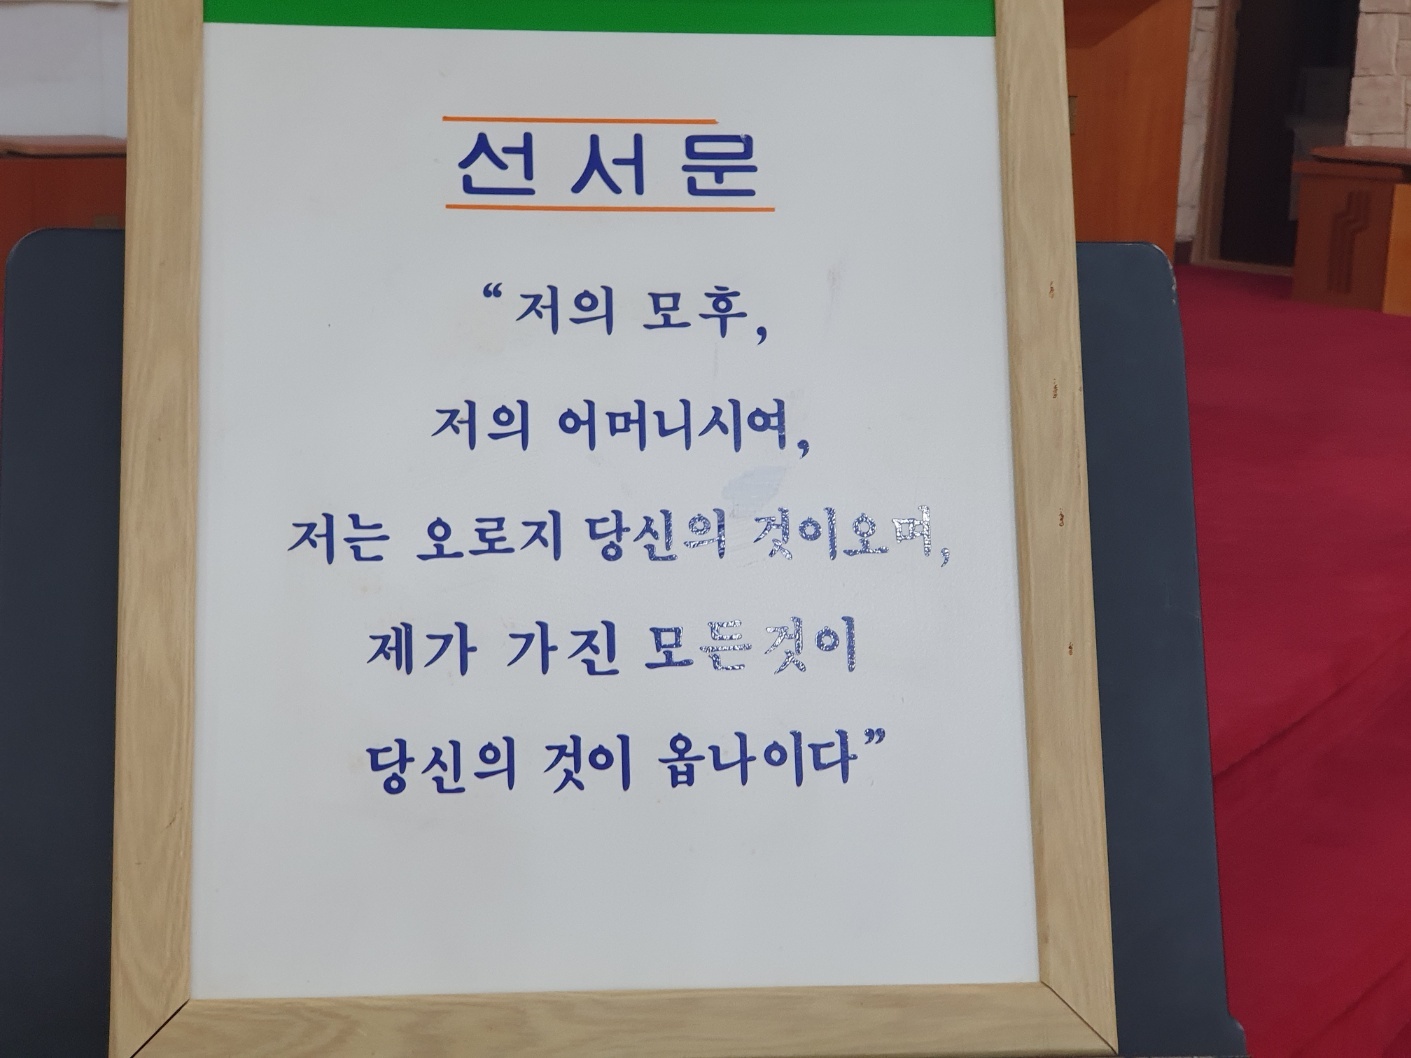 선서문
“저의 모후,
저의 어머니시여,
저는 오로지 당신의 것이오며,
제가 가진 모든것이
당신의 것이 옵나이다”